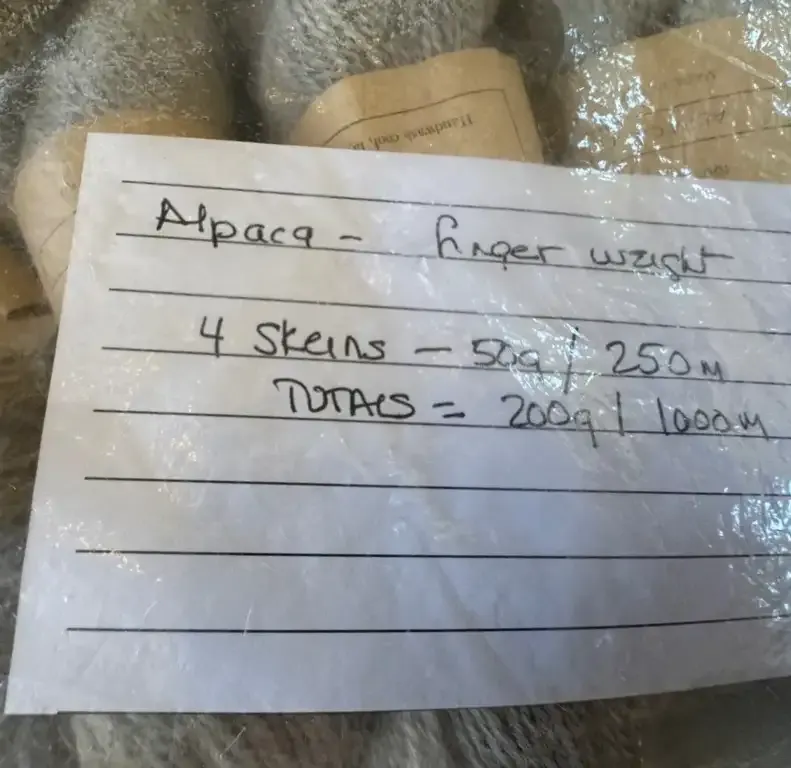 Handwash cool,
Alpaca - finger weight
4 Skeins - 50g / 250m
TOTALS = 200g / 1000m